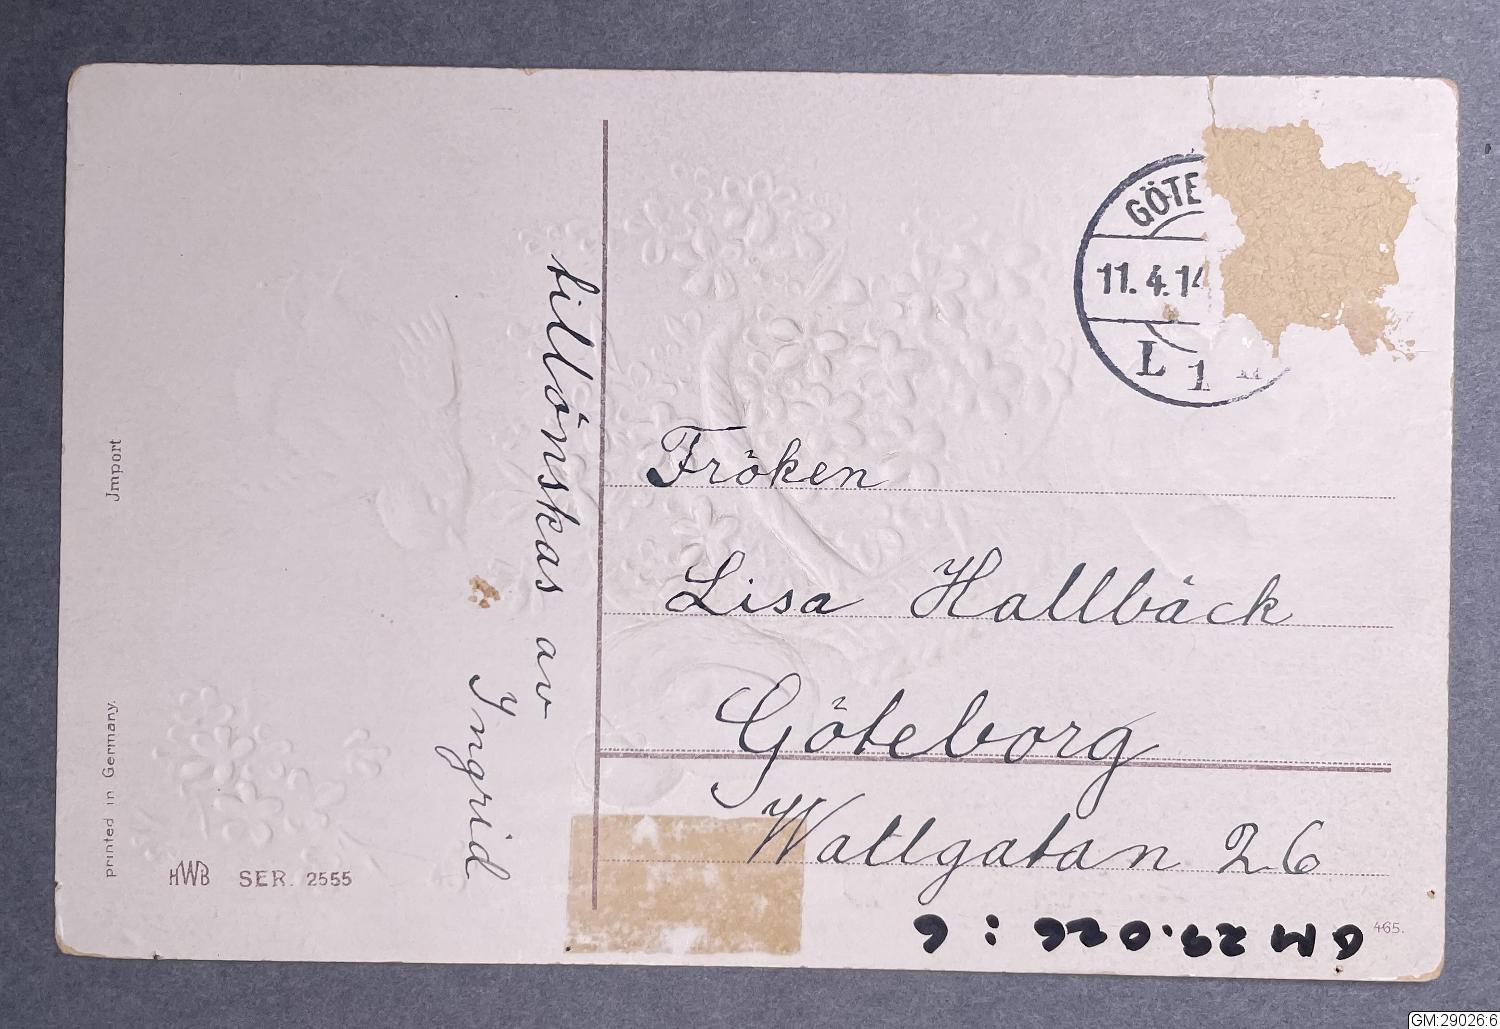 GÖTE
11.4.14
L 1
tillönskas av
Ingrid
Fröken
Lisa Hallbäck
Göteborg
Wallgatan 26
Jmport
printed in Germany.
HWB SER. 2555
465.
GM 29.026:6
GM:29026:6